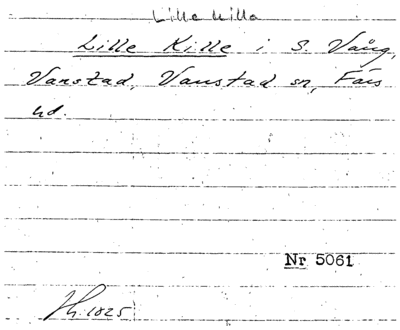 Lille Kille
Lille Kille i S. Vång,
Vanstad, Vanstad sn, Färs
hd.
Nr 5061
1825